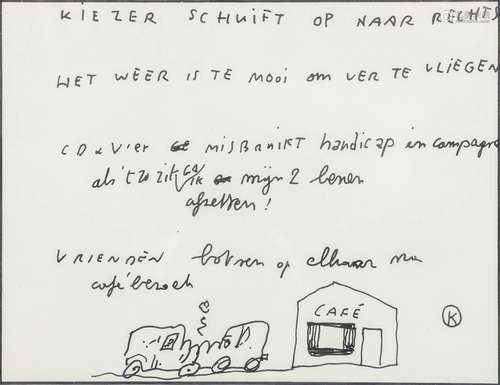 KIEZER SCHUIFT OP NAAR RECHTS
HET WEER IS TE MOOI om VER TE VLIEGEN
CD&V'er MISBRUIKT handicap in campagne
als 't zo zit ga ik mijn 2 benen
afzetten!
VRIENDEN botsen op elkaar na
cafébezoek
CAFÉ
K